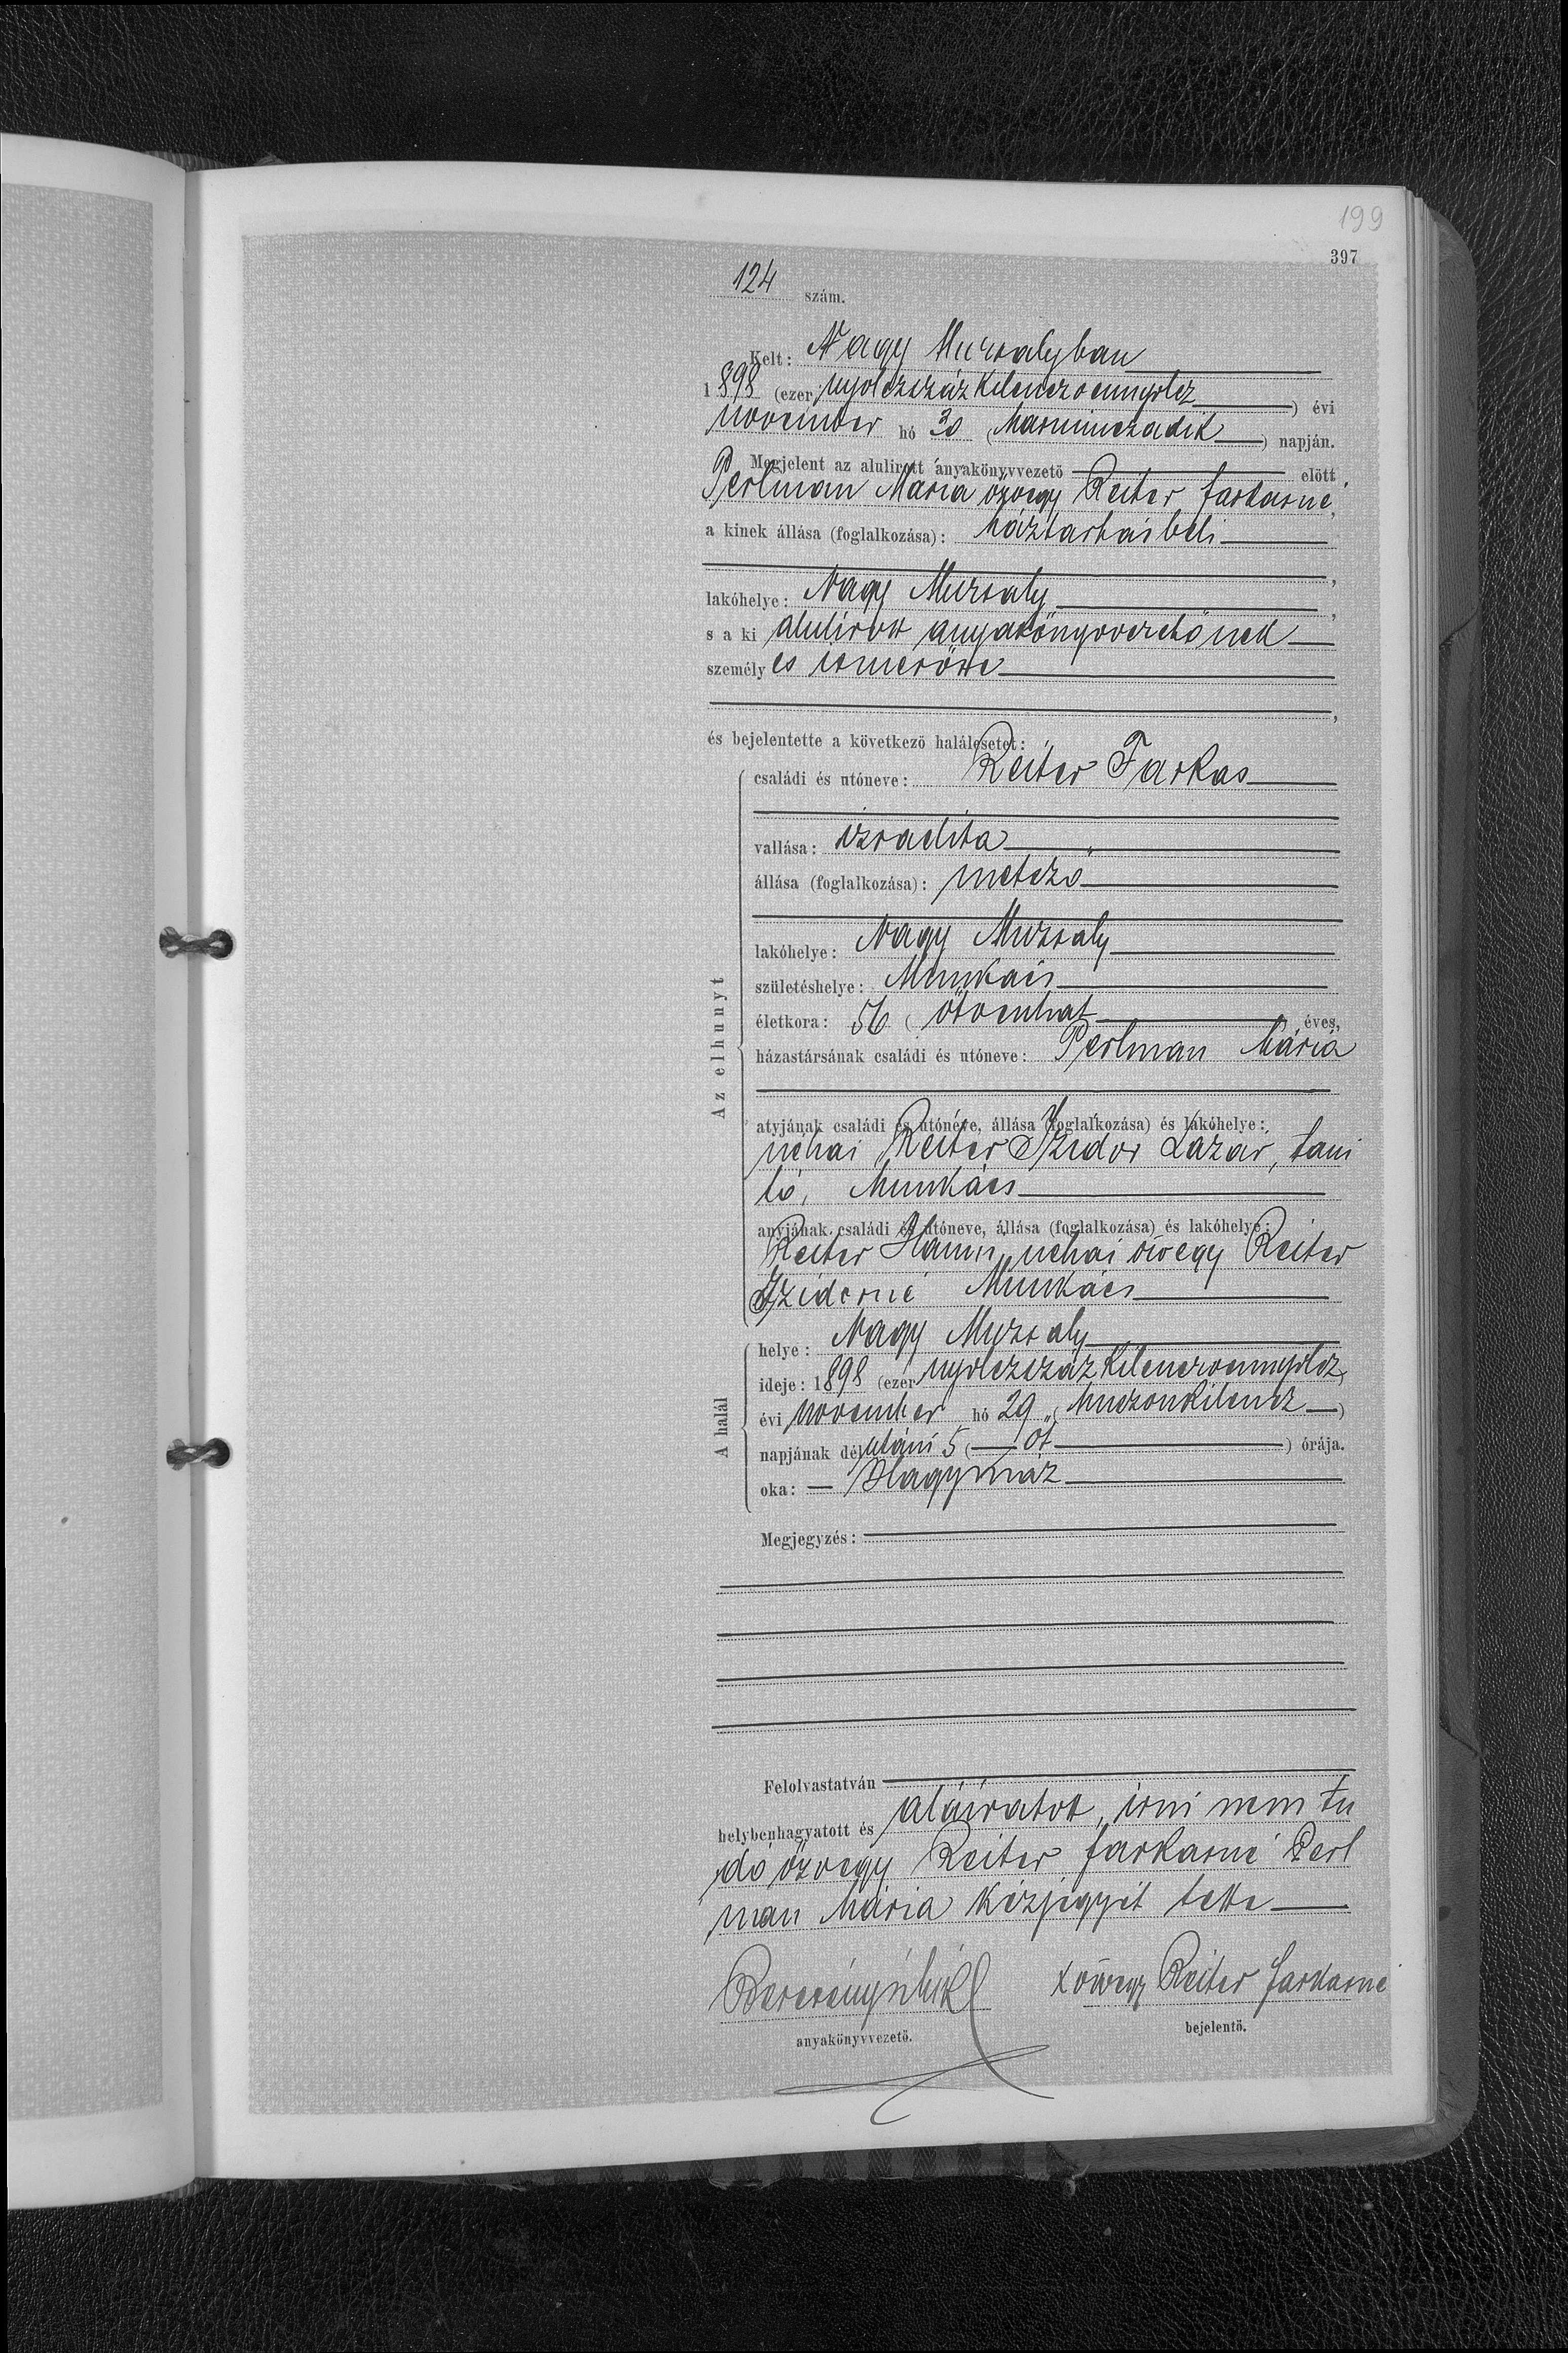 199
397
124 szám.
Kelt: Nagy Muzsalyban
1898 (ezer nyolczszázkilenczvennyolcz) évi
november hó 30 (harminczadik) napján.
Megjelent az alulirott anyakönyvvezetö elött
Perlman Mária özvegy Reiter Farkasné,
a kinek állása (foglalkozása): háztartásbeli
,
lakóhelye: Nagy Muzsaly,
s a ki alulirott anyakönyvvezetőnek
személyes ismerőse
,
és bejelentette a következö halálesetet:
Az elhunyt
családi és utóneve: Reiter Farkas
vallása: izraelita
állása (foglalkozása): metsző
lakóhelye: Nagy Muzsaly
születéshelye: Munkács
életkora: 56 (ötvenhat éves,
házastársának családi és utóneve: Perlman Mária
atyjának családi és utóneve, állása (foglalkozása) és lakóhelye:
néhai Reiter Izidor Lázár, tani
tó, Munkács
anyjának családi és utóneve, állása (foglalkozása) és lakóhelye:
Reiter Hanni, néhai özvegy Reiter
Izidorné Munkács
A halál
helye: Nagy Muzsaly
ideje: 1898 (ezer nyolczszázkilenczvennyolcz)
évi november hó 29 (huszonkilencz)
napjának délutáni 5 (öt) órája.
oka: Hagymáz
Megjegyzés:
Felolvastatván
helybenhagyatott és aláiratott, irni nem tu
dó özvegy Reiter Farkasné Perl
man Mária kézjegyét tette
x özvegy Reiter Farkasné
anyakönyvvezetö.
bejelentö.